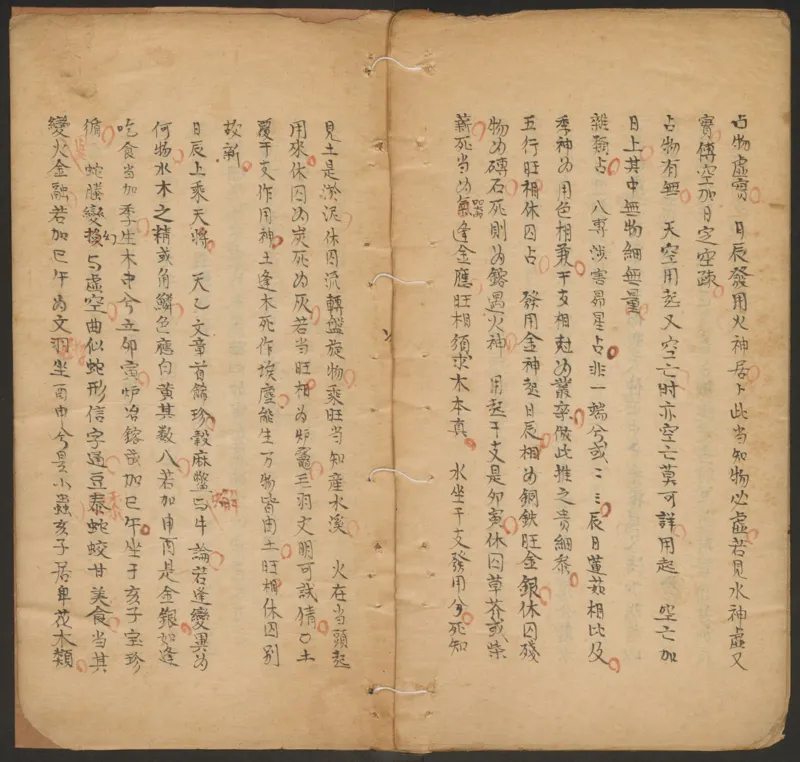 占物虛實　日辰發用火神居卜此当知物必虛若見水神虛又
實傳空加日定空疎
占物有無　天空用起又空亡时亦空亡莫可詳用起　空亡加
日上其中無物細無量
雜類占　八專涉害昴星占非一端兮或二三辰日蓳茹相比及
季神为用色相兼干支相尅为叢辛做此推之贵細泰
五行旺相休囚占　發用金神起日辰相为铜鉄旺金銀休囚殘
物为磚石死則为鎔遇火神　用起干支是卯寅休囚草芥或柴
薪死当为氣器逢金應旺相須求木本真　水坐干支發用兮死知
見土是淤泥休囚流轉盤旋物乘旺当知產水溪　火在当頭起
用來休囚为炭死为灰若当旺相为炉竈毛羽文明可試猜〇土
覆干支作用神土逢木死作埃塵能生万物皆由土旺相休囚别
故新
日辰上乘天將　天乙文章首飾珍穀麻鱉与牛論若逢變異为
何物水木之精或角鱗色應白黄其数八若加申酉是金銀如逢
吃食当加季生木中兮立卯寅炉冶鎔或加巳午坐于亥子宝珍
脩　蛇螣變換幻与虛空曲似蛇形信字通豆泰蛇蛟甘美食当其
變火金融若加巳午为文羽坐酉申兮是小蟲亥子居卑花木類